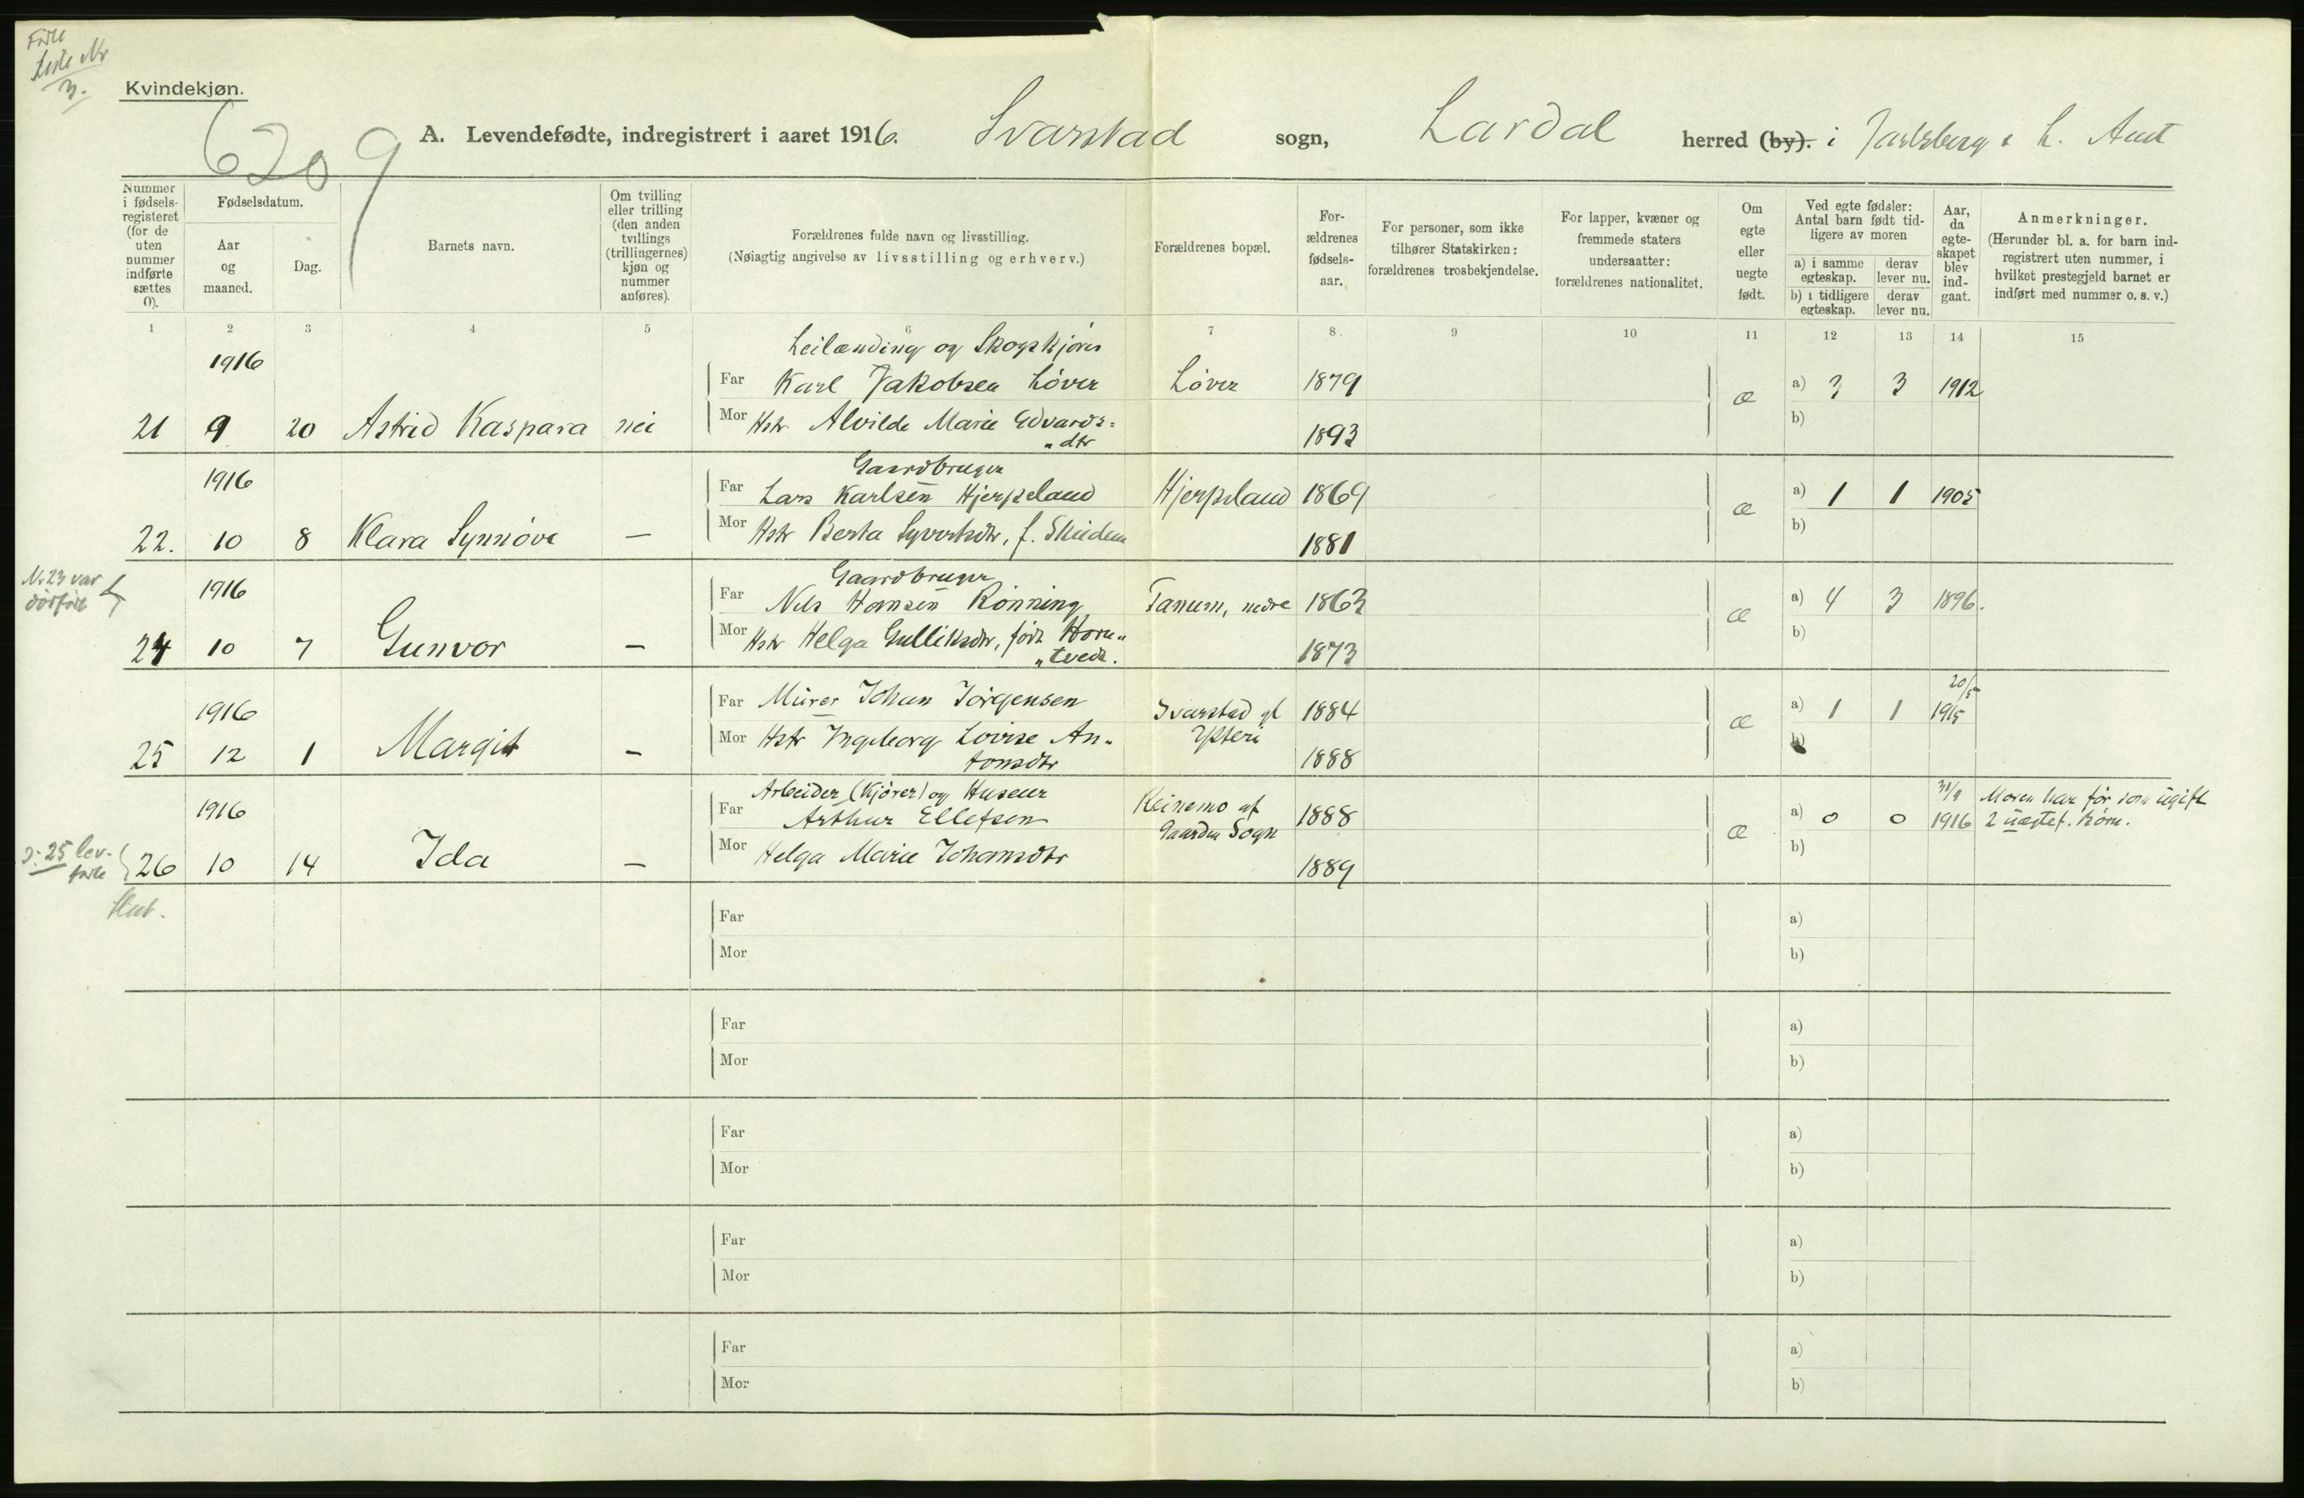 Føde
Liste Nr
3.
Kvindekjøn.
6209
A. Levendefødte, indregistrert i aaret 1916. Svarstad sogn, Lardal herred (by). i Jarlsberg & L. Amt
Nummer i fødsels-registeret (for de uten nummer indførte sættes 0).
Fødselsdatum.
Aar og maaned.
Dag.
Barnets navn.
Om tvilling eller trilling (den anden tvillings (trillingernes) kjøn og nummer anføres).
Forældrenes fulde navn og livsstilling.
(Nøiagtig angivelse av livsstilling og erhverv.)
Forældrenes bopæl.
For-ældrenes fødsels-aar.
For personer, som ikke tilhører Statskirken: forældrenes trosbekjendelse.
For lapper, kvæner og fremmede staters undersaatter: forældrenes nationalitet.
Om egte eller uegte født.
Ved egte fødsler: Antal barn født tid-ligere av moren
a) i samme egteskap. derav lever nu.
b) i tidligere egteskap. derav lever nu.
Aar, da egte-skapet blev ind-gaat.
Anmerkninger.
(Herunder bl. a. for barn ind-registrert uten nummer, i hvilket prestegjeld barnet er indført med nummer o. s. v.)
1 2 3 4 5 6 7 8 9 10 11 12 13 14 15
1916 Leilænding og Skogskjører
Far Karl Jakobsen Løver Løver 1879 a) 3 3 1912
21 9 20 Astrid Kaspara nei Mor Hstr Alvilde Marie Edvards= 1893 æ b)
"dtr
1916 Gaardbruger
Far Lars Karlsen Hjerpeland Hjerpeland 1869 a) 1 1 1905
22. 10 8 Klara Synnøve — Mor Hstr Berta Syvertsdtr, f. Skuden 1881 æ b)
Nr 23 var
dødfødt
1916 Gaardbruger
Far Nils Hansen Rønning Tanum, nedre 1863 a) 4 3 1896.
24 10 7 Gunvor — Mor Hstr Helga Gulliksdtr, født Horn" 1873 æ b)
"tvedt.
1916 Far Murer Johan Jørgensen Svarstad gl 1884 a) 1 1 20/5 1915
Ysteri
25 12 1 Margit — Mor Hstr Ingeborg Lovise An- 1888 æ b)
tonsdtr
1916 Arbeider (Kjører) og Huseier
Far Arthur Ellefsen Reinemo af 1888 a) 0 0 1916 Moren har før som ugift
Gaarden Sogn 2 uægtef. Børn.
26 10 14 Ida — Mor Helga Marie Johansdtr 1889 æ b)
ɔ: 25 lev.
fødte
Slut.
Far a)
Mor b)
Far a)
Mor b)
Far a)
Mor b)
Far a)
Mor b)
Far a)
Mor b)